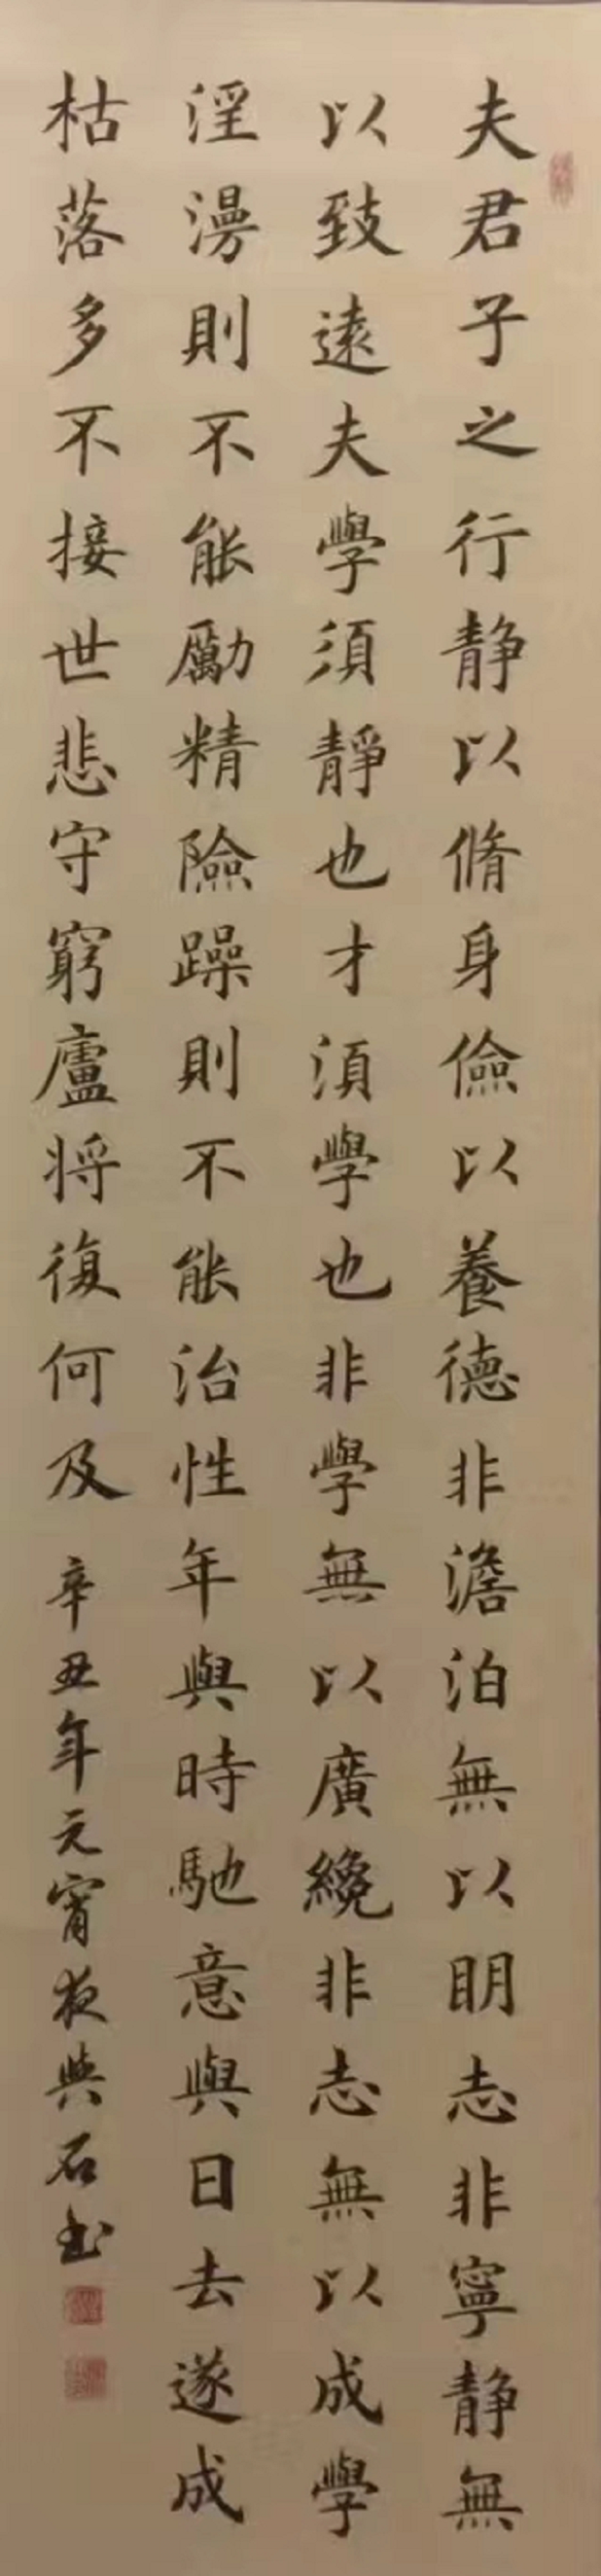 夫君子之行静以脩身儉以養德非澹泊無以明志非寧静無
以致遠夫學須靜也才須學也非學無以廣纔非志無以成學
淫漫則不能勵精險躁則不能治性年與時馳意與日去遂成
枯落多不接世悲守窮廬将復何及
辛丑年元宵夜興石书